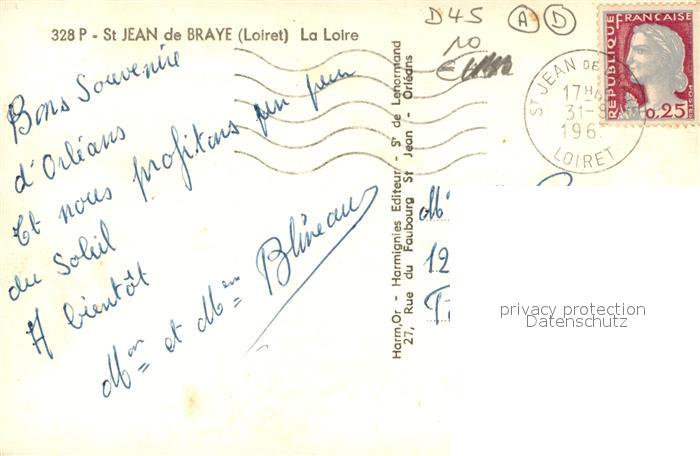 328 P - St JEAN de BRAYE (Loiret) La Loire
D 45
A D
10
RÉPUBLIQUE FRANÇAISE
POSTES
0,25
ST JEAN DE
17H
31-
196
LOIRET
Bons Souvenirs
d'Orléans
Et nous profitons un peu
du Soleil
A bientôt
Mon et Mme Blineau
Harm,Or - Harmignies Editeur - Sr de Lenormand
27, Rue du Faubourg St Jean - Orléans
12
privacy protection
Datenschutz